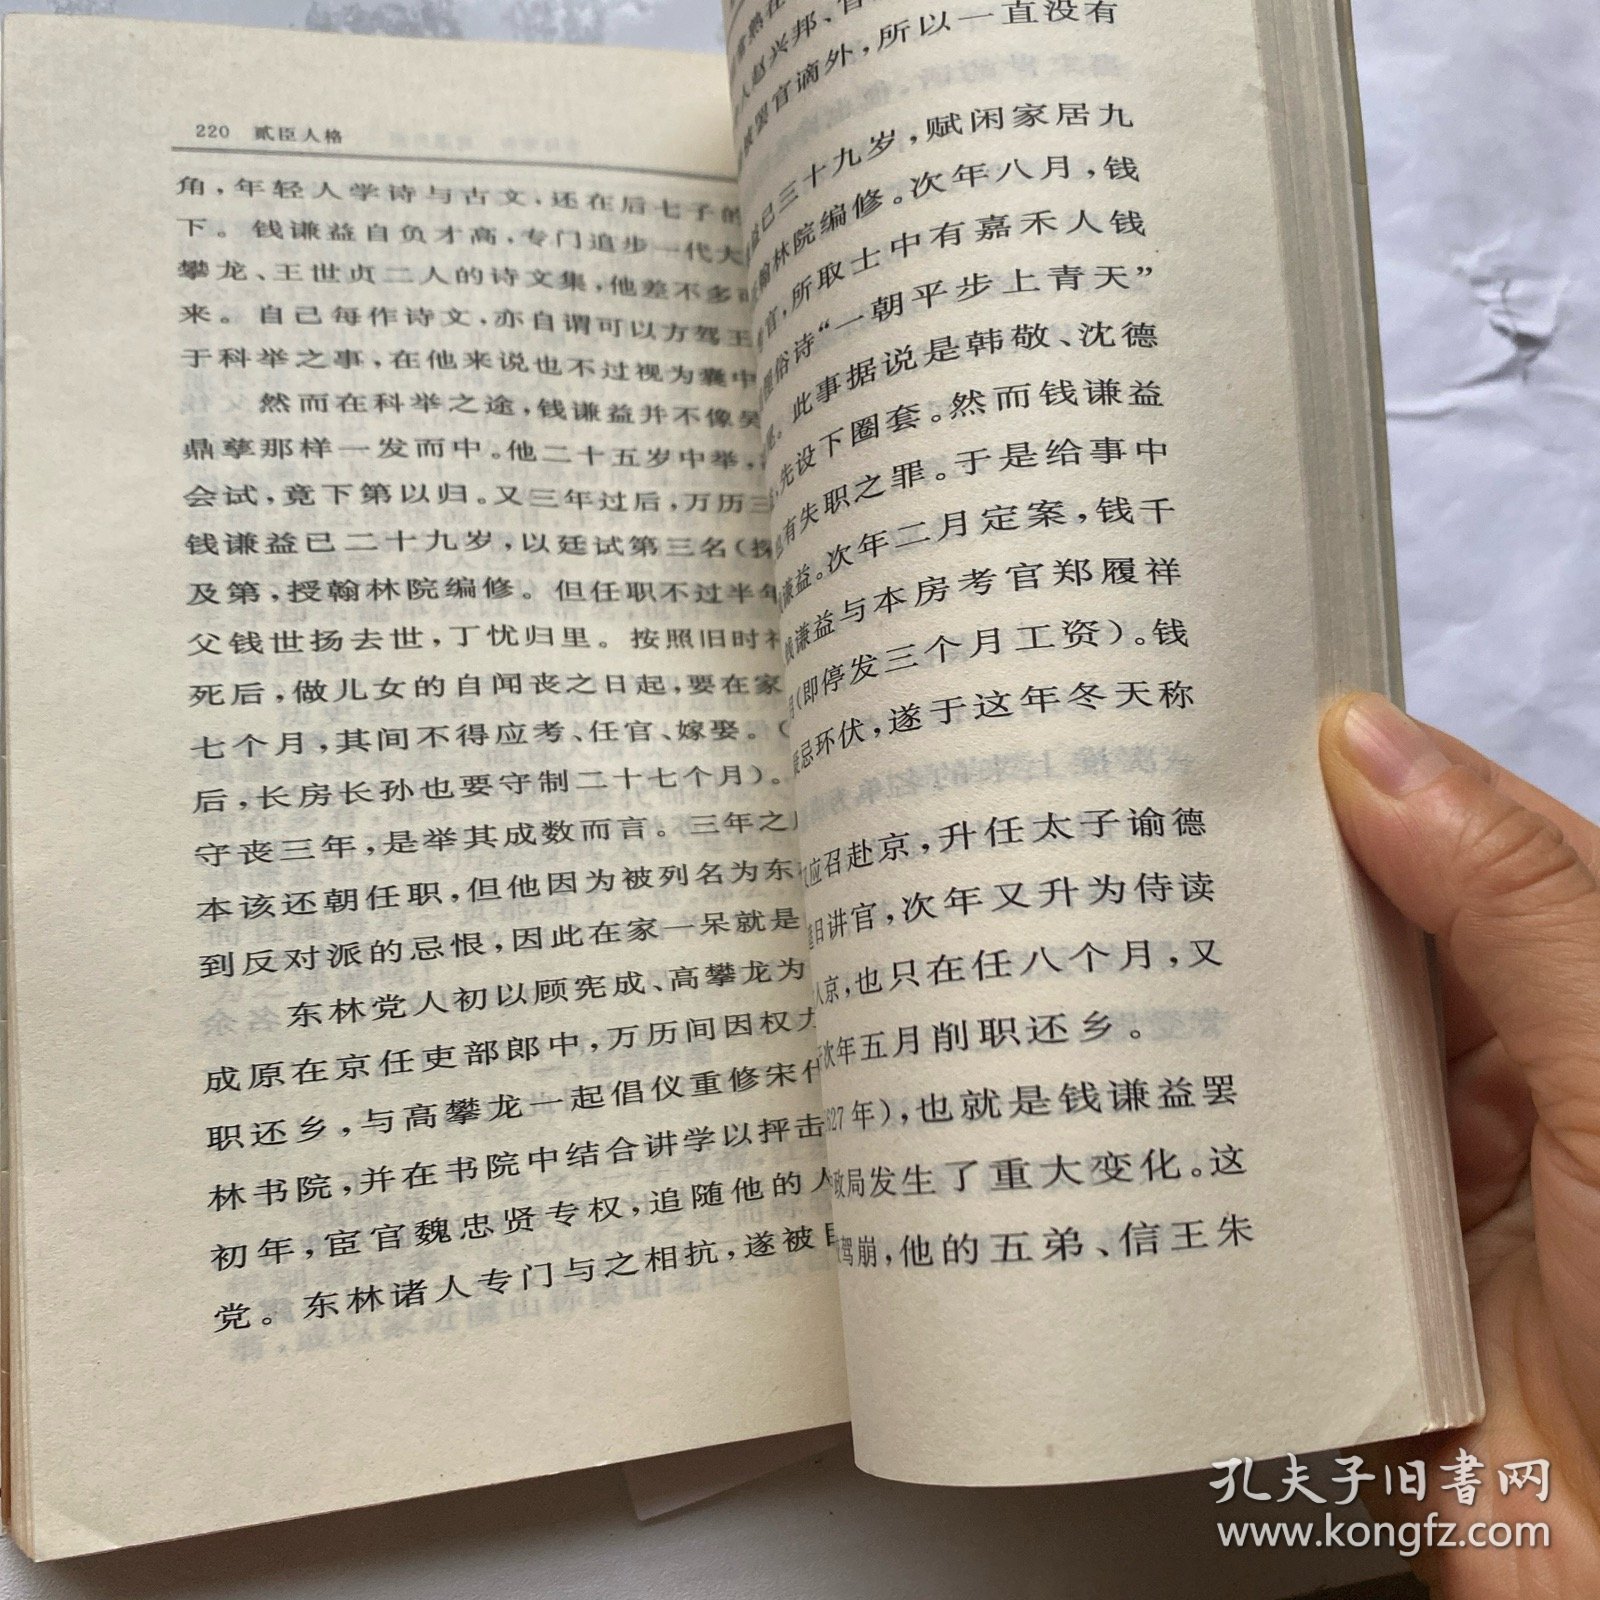 220 贰臣人格
角，年轻人学诗与古文，还在后七子的
下。钱谦益自负才高，专门追步一代大
攀龙、王世贞二人的诗文集，他差不多
来。自己每作诗文，亦自谓可以方驾王
于科举之事，在他来说也不过视为囊中
然而在科举之途，钱谦益并不像吴
鼎孳那样一发而中。他二十五岁中举，
会试，竟下第以归。又三年过后，万历三
钱谦益已二十九岁，以廷试第三名（探
及第，授翰林院编修。但任职不过半年
父钱世扬去世，丁忧归里。按照旧时礼
死后，做儿女的自闻丧之日起，要在家
七个月，其间不得应考、任官、嫁娶。（
后，长房长孙也要守制二十七个月）。
守丧三年，是举其成数而言。三年之
本该还朝任职，但他因为被列名为东
到反对派的忌恨，因此在家一呆就是
东林党人初以顾宪成、高攀龙为
成原在京任吏部郎中，万历间因权
职还乡，与高攀龙一起倡仪重修宋代
林书院，并在书院中结合讲学以抨击
初年，宦官魏忠贤专权，追随他的人
党。东林诸人专门与之相抗，遂被目
人赵兴邦、官
被罢官谪外，所以一直没有
益已三十九岁，赋闲家居九
翰林院编修。次年八月，钱
官，所取士中有嘉禾人钱
俚俗诗“一朝平步上青天”
。此事据说是韩敬、沈德
，先设下圈套。然而钱谦益
有失职之罪。于是给事中
谦益。次年二月定案，钱千
钱谦益与本房考官郑履祥
月（即停发三个月工资）。钱
忌环伏，遂于这年冬天称
应召赴京，升任太子谕德
日讲官，次年又升为侍读
入京，也只在任八个月，又
于次年五月削职还乡。
627年），也就是钱谦益罢
政局发生了重大变化。这
驾崩，他的五弟、信王朱
孔夫子旧书网
www.kongfz.com